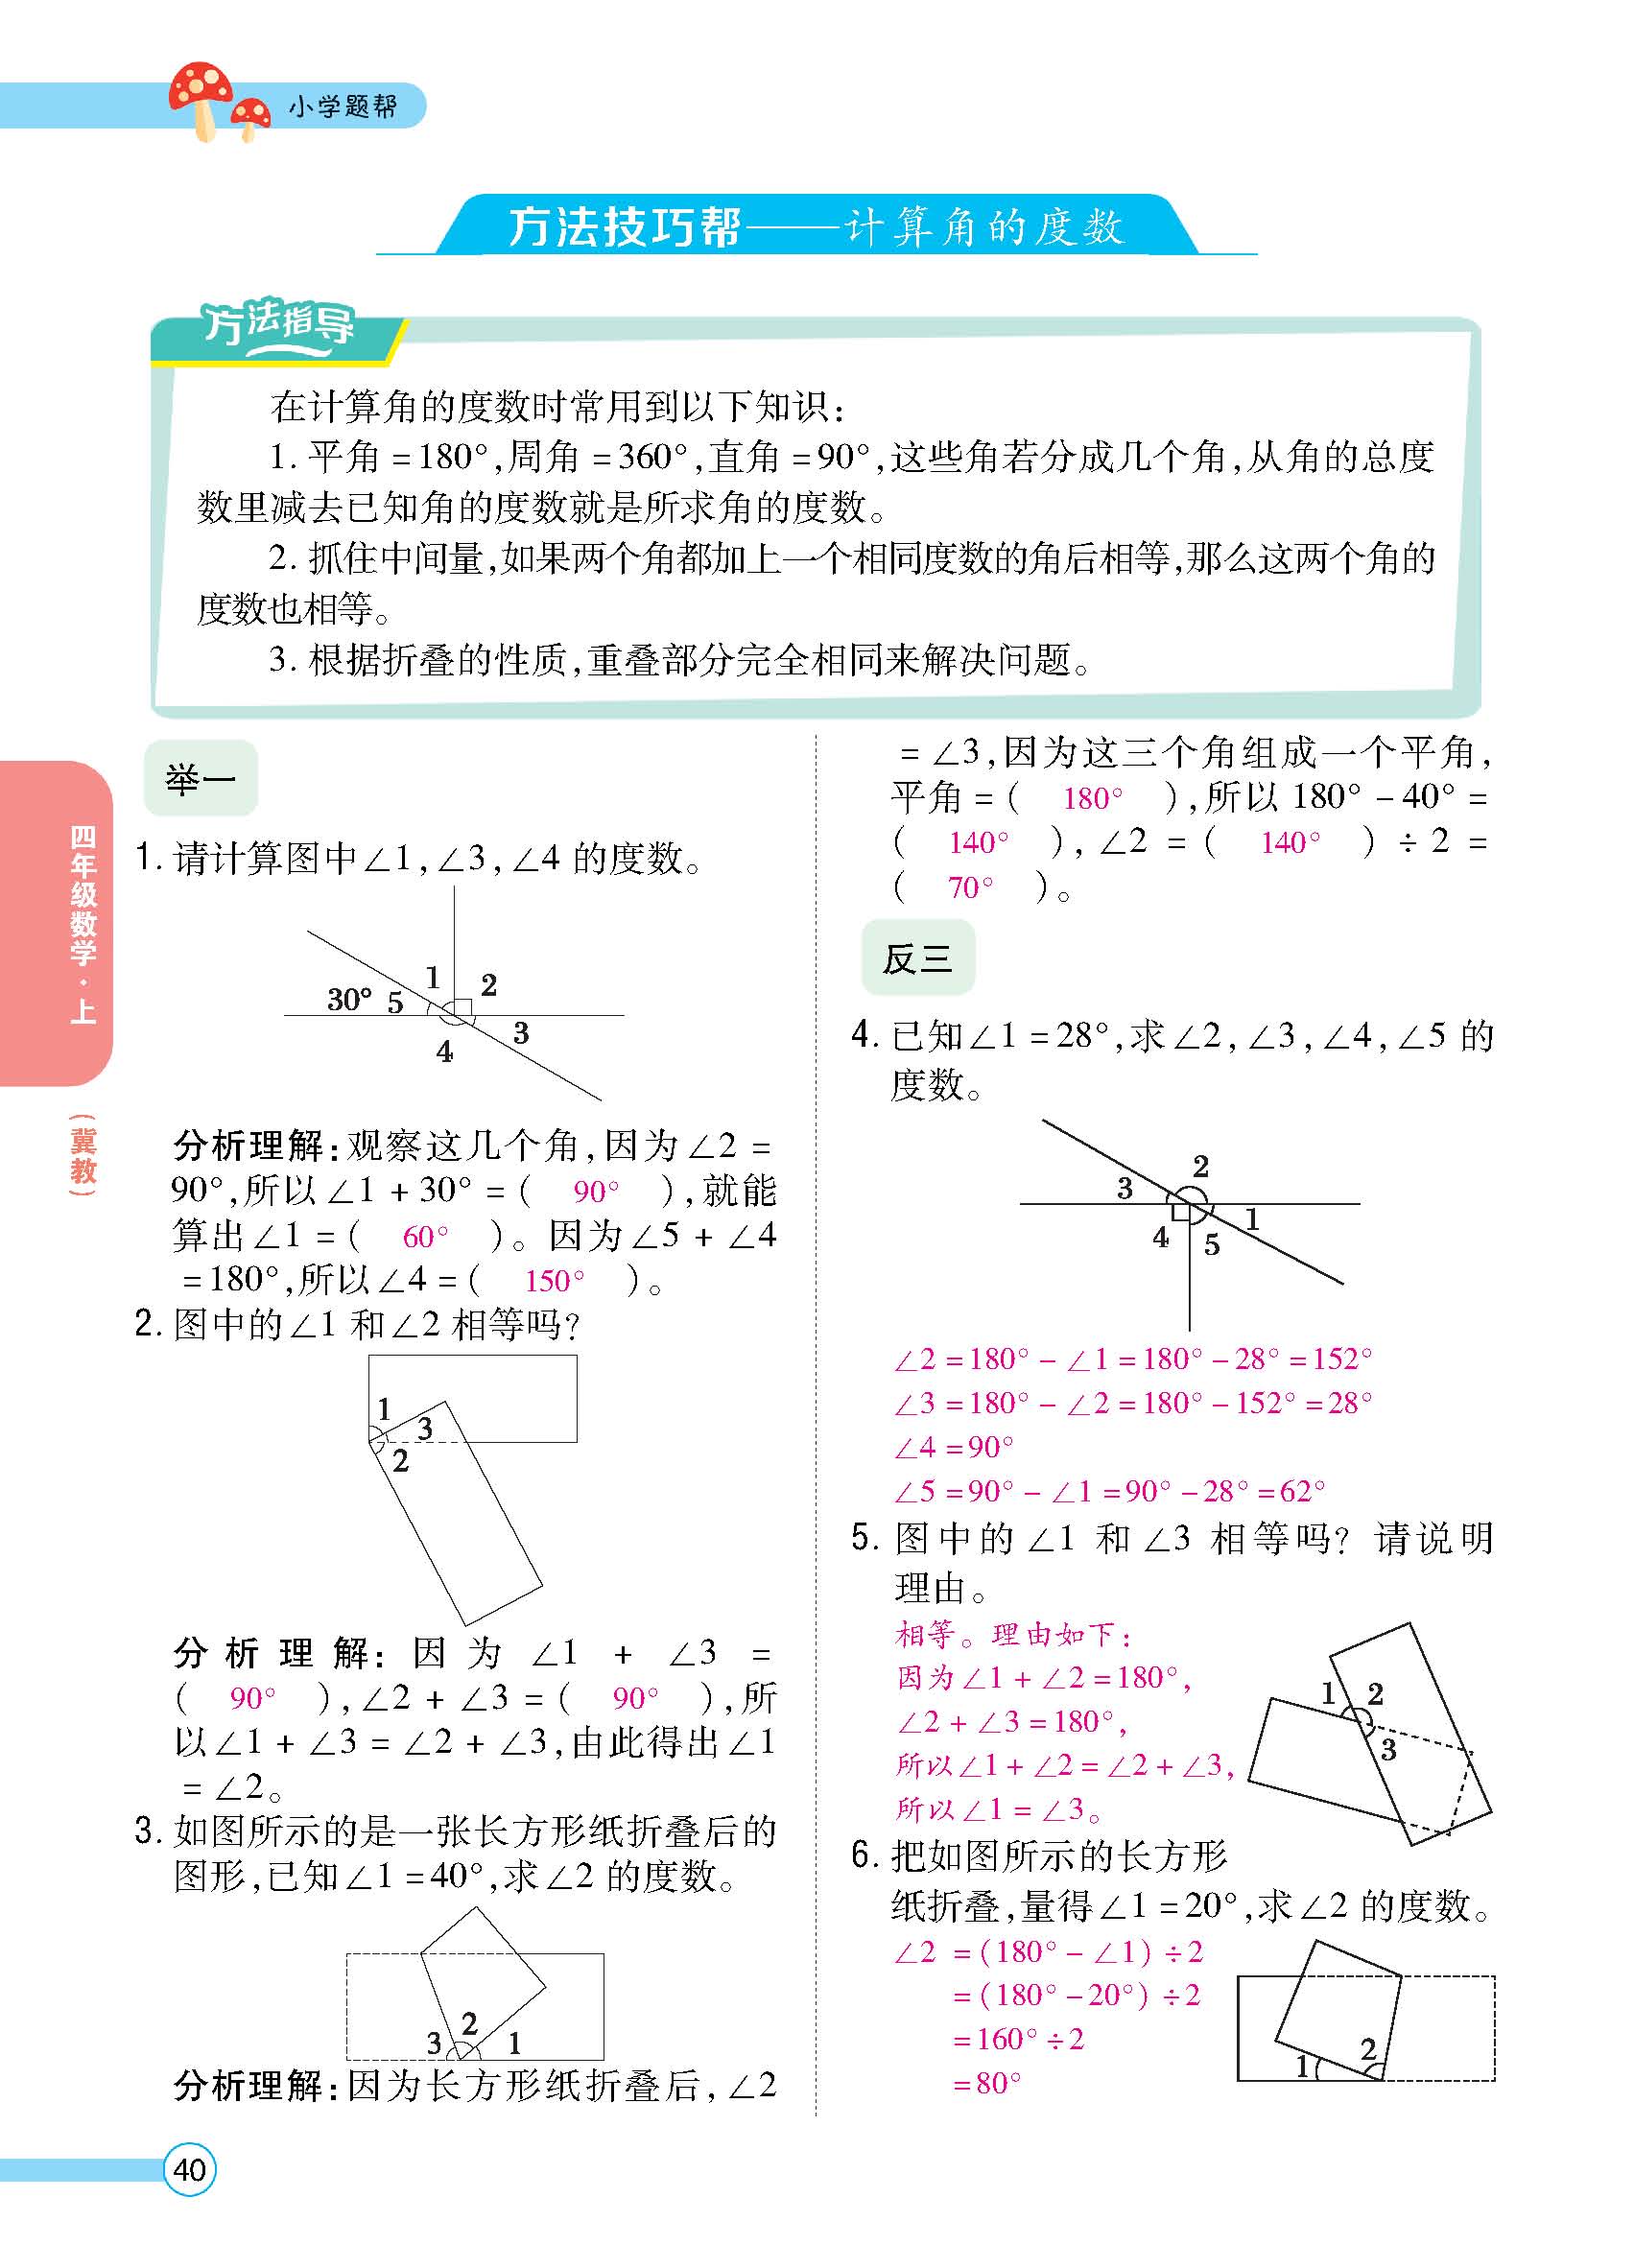 小学题帮
方法技巧帮——计算角的度数
方法指导
在计算角的度数时常用到以下知识:
1. 平角=180°,周角=360°,直角=90°,这些角若分成几个角,从角的总度
数里减去已知角的度数就是所求角的度数。
2. 抓住中间量,如果两个角都加上一个相同度数的角后相等,那么这两个角的
度数也相等。
3. 根据折叠的性质,重叠部分完全相同来解决问题。
四年级数学·上
(冀教)
举一
1. 请计算图中∠1,∠3,∠4 的度数。
1
2
30° 5
3
4
分析理解:观察这几个角,因为∠2=
90°,所以∠1+30°=( 90° ),就能
算出∠1=( 60° )。因为∠5+∠4
=180°,所以∠4=( 150° )。
2. 图中的∠1 和∠2 相等吗?
1
3
2
分析理解:因为∠1+∠3=
( 90° ),∠2+∠3=( 90° ),所
以∠1+∠3=∠2+∠3,由此得出∠1
=∠2。
3. 如图所示的是一张长方形纸折叠后的
图形,已知∠1=40°,求∠2 的度数。
2
3
1
分析理解:因为长方形纸折叠后,∠2
=∠3,因为这三个角组成一个平角,
平角=( 180° ),所以 180°-40°=
( 140° ),∠2=( 140° )÷2=
( 70° )。
反三
4. 已知∠1=28°,求∠2,∠3,∠4,∠5 的
度数。
2
3
1
4 5
∠2=180°-∠1=180°-28°=152°
∠3=180°-∠2=180°-152°=28°
∠4=90°
∠5=90°-∠1=90°-28°=62°
5. 图中的∠1 和∠3 相等吗? 请说明
理由。
相等。理由如下:
因为∠1+∠2=180°,
∠2+∠3=180°,
所以∠1+∠2=∠2+∠3,
所以∠1=∠3。
1 2
3
6. 把如图所示的长方形
纸折叠,量得∠1=20°,求∠2 的度数。
∠2 =(180°-∠1)÷2
=(180°-20°)÷2
=160°÷2
=80°
2
1
40